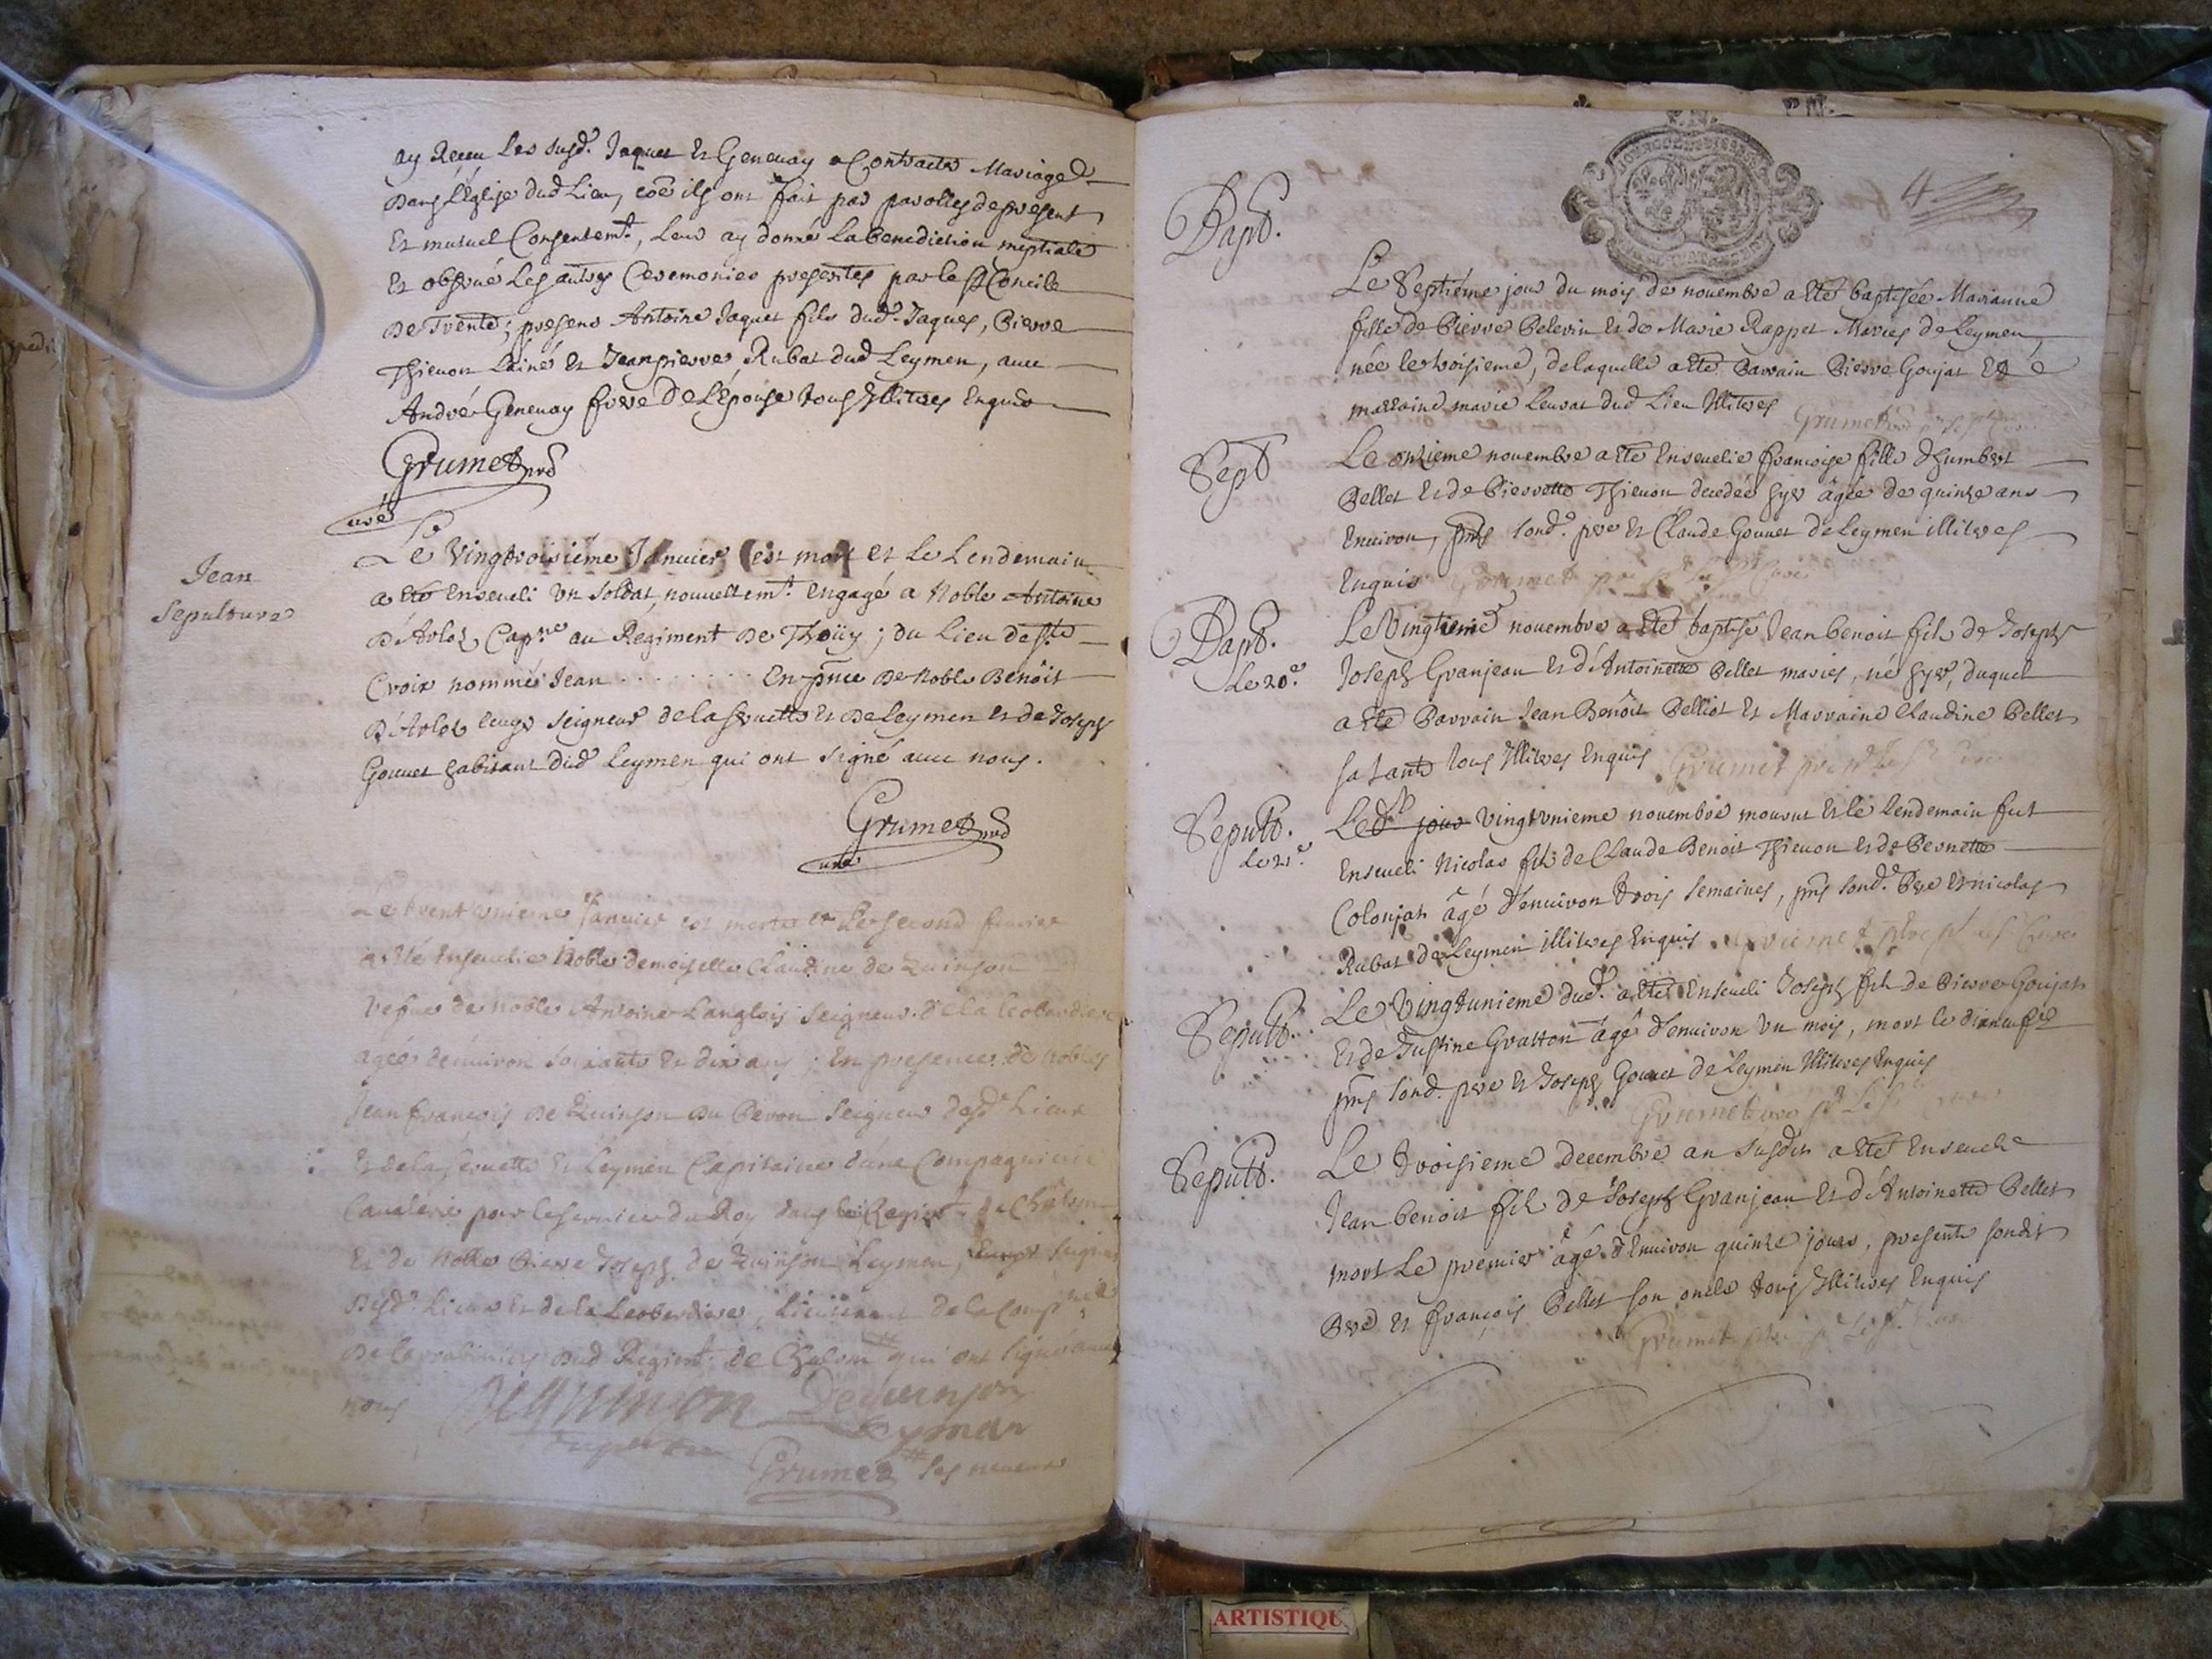 ay Receu Les susd. Jaquet Et Geneuay a Contracter Mariage
Dans L'Eglise dud Lieu, coe ils ont fait par parolles de present
Et mutuel Consentemt, Leur ay donné La Benediction nuptiale
Et obserué Les autres Ceremonies presentes par le St Concile
De Trente; presens Antoine Jaquet fils dud. Jaques, Pierre
Thieuon Lainé Et Jean pierre Rubat dud Leymen, auec
André Geneuay frere De L'Epouse tous Illitres Enquis
Grumet
curé
Jean
Sepulture
Le Vingtroisiéme Januier est mort et Le Lendemain
a Eté Enseueli Un Soldat nouuellemt. Engagé a Noble Antoine
D'Arloz, Capne au Regiment De Thoüy; du Lieu de Ste
Croix nommé Jean . . . . . . . . En pnce De Noble Benoit
D'Arloz Seigneur de la Seruette Et De Leymen Et de Joseph
Gouuet habitant dud Leymen qui ont signé auec nous.
Grumet
curé
Le trent unieme Januier est morte et Le second feurier
a Eté Enseuelie Noble demoiselle Claudine de Quinson
Vefue de noble Antoine Langlois Seigneur de la
agée denuiron soixante Et dix ans; En presence de nobles
Jean francois De Quinson Du Seigneur desd Lieux
Et de la Seruette Et Leymen Capitaine d'une Compagnie
Caualerie pour le seruice du Roy dans le Regimt. de Chalom
Et de Noble Pierre Joseph de Quinson Leymen,
Desd. Lieux Et de la Leoberdiere, Lieutenant de la Compnie
De Carabiniers Dud Regimt. de Chalom qui ont signé auec
nous De quinson Dequinson
Leymen
Grumet ses neueux
4
Bapt.
Le Septiéme jour du mois de nouembre a Eté baptisée Marianne
fille de Pierre Pelerin Et de Marie Rappet Maries de Leymen,
née le troisieme, de laquelle a Eté Parrain Pierre Goujat Et
marraine marie Leurat dud Lieu Illitres
Grumet
Sept
Le onzieme nouembre a Eté Enseuelie francoise fille d'humbert
Pellet Et de Pierrette Thieuon decedée hyer âgée de quinze ans
Enuiron, pns sond. pere Et Claude Gouuet de Leymen illitres
Enquis Grumet
Bapt.
Le 20e.
Le Vingtieme nouembre a Eté baptisé Jean benoit fils de Joseph
Joseph Granjean Et d'Antoinette Pellet maries, né hyer, duquel
a Eté Parrain Jean Benoit Pelliot Et Marraine Claudine Pellet
sa tante tous Illitres Enquis Grumet
Sepult.
Le 21e.
Led. jour Vingt unieme nouembre mourut Et le lendemain fut
Enseueli Nicolas fils de Claude Benoit Thieuon Et de Pernette
Colonjat âgé d'enuiron trois semaines, pns sond. Pere Et nicolas
Rubat de Leymen illitres Enquis Grumet
Sepult.
Le Vingtunieme dud. a Eté Enseueli Joseph fils de Pierre Goujat
Et de Justine Gratton âgé d'enuiron Un mois, mort le dixneufe
pns sond. pere Et Joseph Gouuet de Leymen Illitres Enquis
Grumet
Sepult.
Le troisieme decembre an susdit a Eté Enseueli
Jean benoit fils de Joseph Granjean Et d'Antoinette Pellet
mort Le premier âgé d'Enuiron quinze jours, presents sondit
Pere Et francois Pellet son oncle tous Illitres Enquis
Grumet
ARTISTIQU